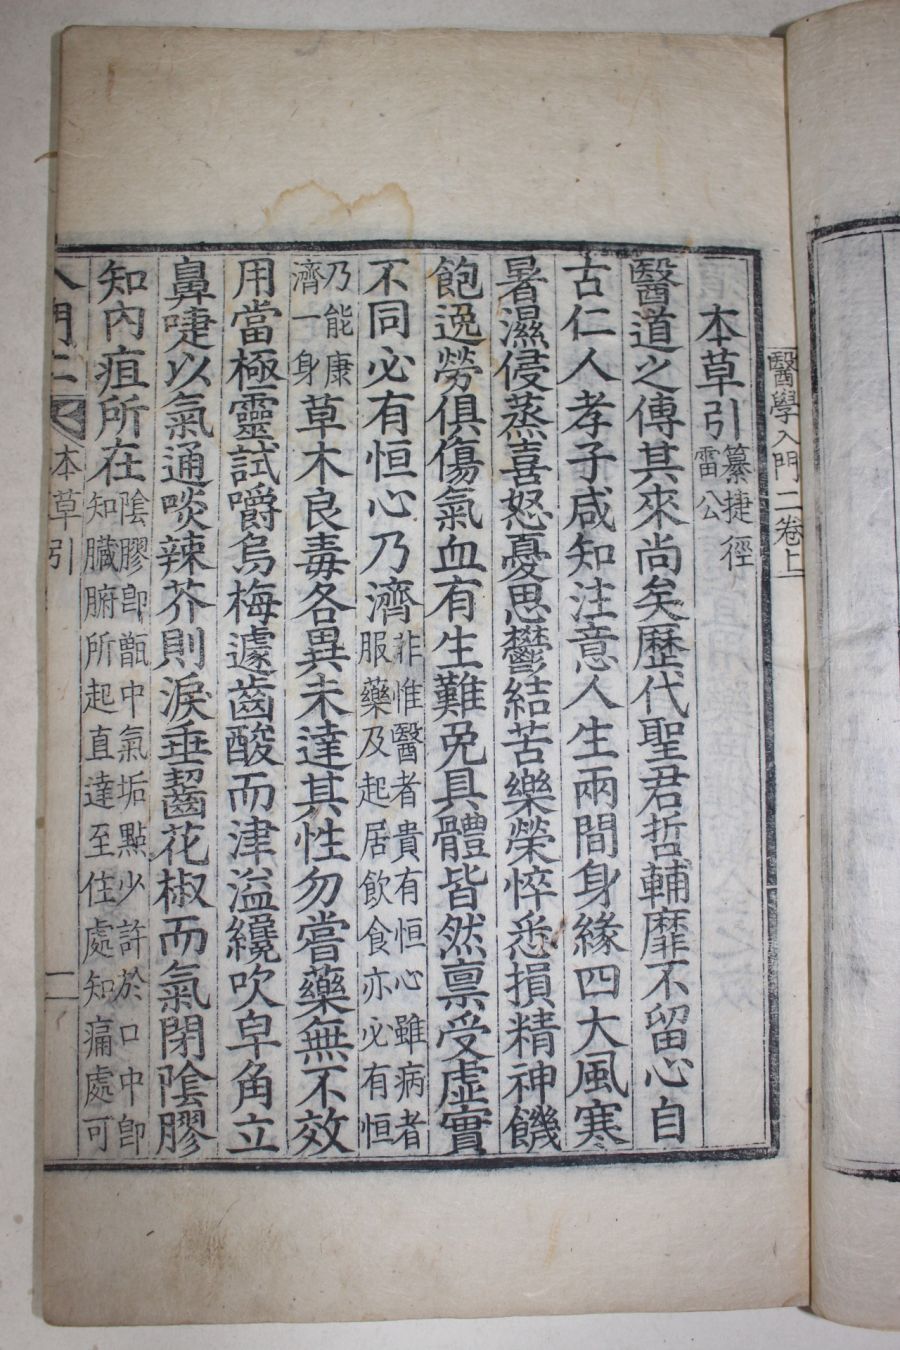 醫學入門二卷上
本草引 纂捷徑 雷公
醫道之傳其來尚矣歷代聖君哲輔靡不留心自
古仁人孝子咸知注意人生兩間身緣四大風寒
暑濕侵蒸喜怒憂思鬱結苦樂榮悴悉損精神饑
飽逸勞俱傷氣血有生難免具體皆然禀受虛實
不同必有恒心乃濟 非惟醫者貴有恒心雖病者 服藥及起居飲食亦必有恒
乃能康 濟一身 草木良毒各異未達其性勿嘗藥無不效
用當極靈試嚼烏梅遽齒酸而津溢纔吹皁角立
鼻嚏以氣通啖辣芥則淚垂齧花椒而氣閉陰膠
知內疽所在 陰膠卽甑中氣垢點少許於口中卽 知臟腑所起直達至住處知痛處可
入門二 本草引 一